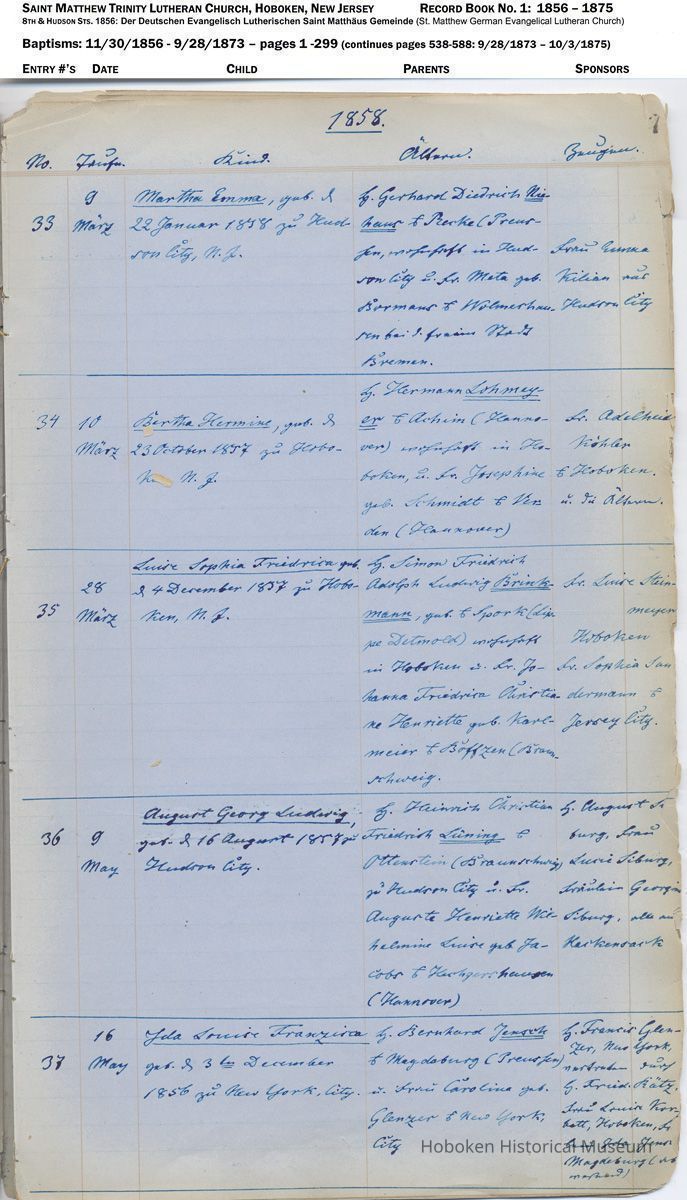 SAINT MATTHEW TRINITY LUTHERAN CHURCH, HOBOKEN, NEW JERSEY RECORD BOOK NO. 1: 1856 – 1875
8TH & HUDSON STS. 1856: Der Deutschen Evangelisch Lutherischen Saint Matthäus Gemeinde (St. Matthew German Evangelical Lutheran Church)
Baptisms: 11/30/1856 - 9/28/1873 – pages 1 -299 (continues pages 538-588: 9/28/1873 – 10/3/1875)
ENTRY #'S DATE CHILD PARENTS SPONSORS
1858.
7
No. Taufn. Kind. Ältern. Zeugen.
33
9
März
Martha Emma, geb. d
22 Januar 1858 zu Hud-
son City, N. J.
H. Gerhard Diedrich Nie-
haus (Preus-
sen, wohnhaft in Hud-
son City u. Fr. Meta geb.
Bormans
sen bei d. freien Stadt
Bremen.
Frau Emma
Kilian aus
Hudson City
34
10
März
Bertha Hermine, geb. d
23 October 1857 zu Hobo-
N. J.
H. Hermann Lohmey-
er Achim (Hanno-
ver) wohnhaft in Ho-
boken, u. Fr. Josephine
geb. Schmidt Ver-
den (Hannover)
Fr. Adelheid
Köhler
Hoboken.
u. die Ältern.
35
28
März
Luise Sophia Friedrica geb.
d 4 December 1857 zu Hobo-
ken, N. J.
H. Simon Friedrich
Adolph Ludwig Brink-
mann, geb. Spork (Lip-
pe Detmold) wohnhaft
in Hoboken u. Fr. Jo-
hanna Friedrica Christia-
ne Henriette geb. Karl-
meier Boffzen (Braun-
schweig.
Fr. Luise Stein-
meyer
Hoboken
Fr. Sophia
dermann
Jersey City.
36
9
May
August Georg Ludwig,
geb. d 16 August 1857 zu
Hudson City.
H. Heinrich Christian
Friedrich Lüning
Ottenstein (Braunschweig)
zu Hudson City u. Fr.
Auguste Henriette Wil-
helmine Luise geb Ja-
cobs
(Hannover)
H. August Si-
burg, Frau
Lucie Siburg,
Fräulein Georgin
Siburg, alle aus
Hackensack
37
16
May
Ida Louise Franzisca
geb. d 3ten December
1856 zu New York, City.
H. Bernhard Jensch
Magdeburg (Preussen)
u. Frau Carolina geb.
Glenzer New York,
City
H. Francis Glen-
zer, New York,
vertreten durch
H. Fried. Kätz,
Frau Louise Kor-
bett, Hoboken, Fr
Magdeburg
Hoboken Historical Museum